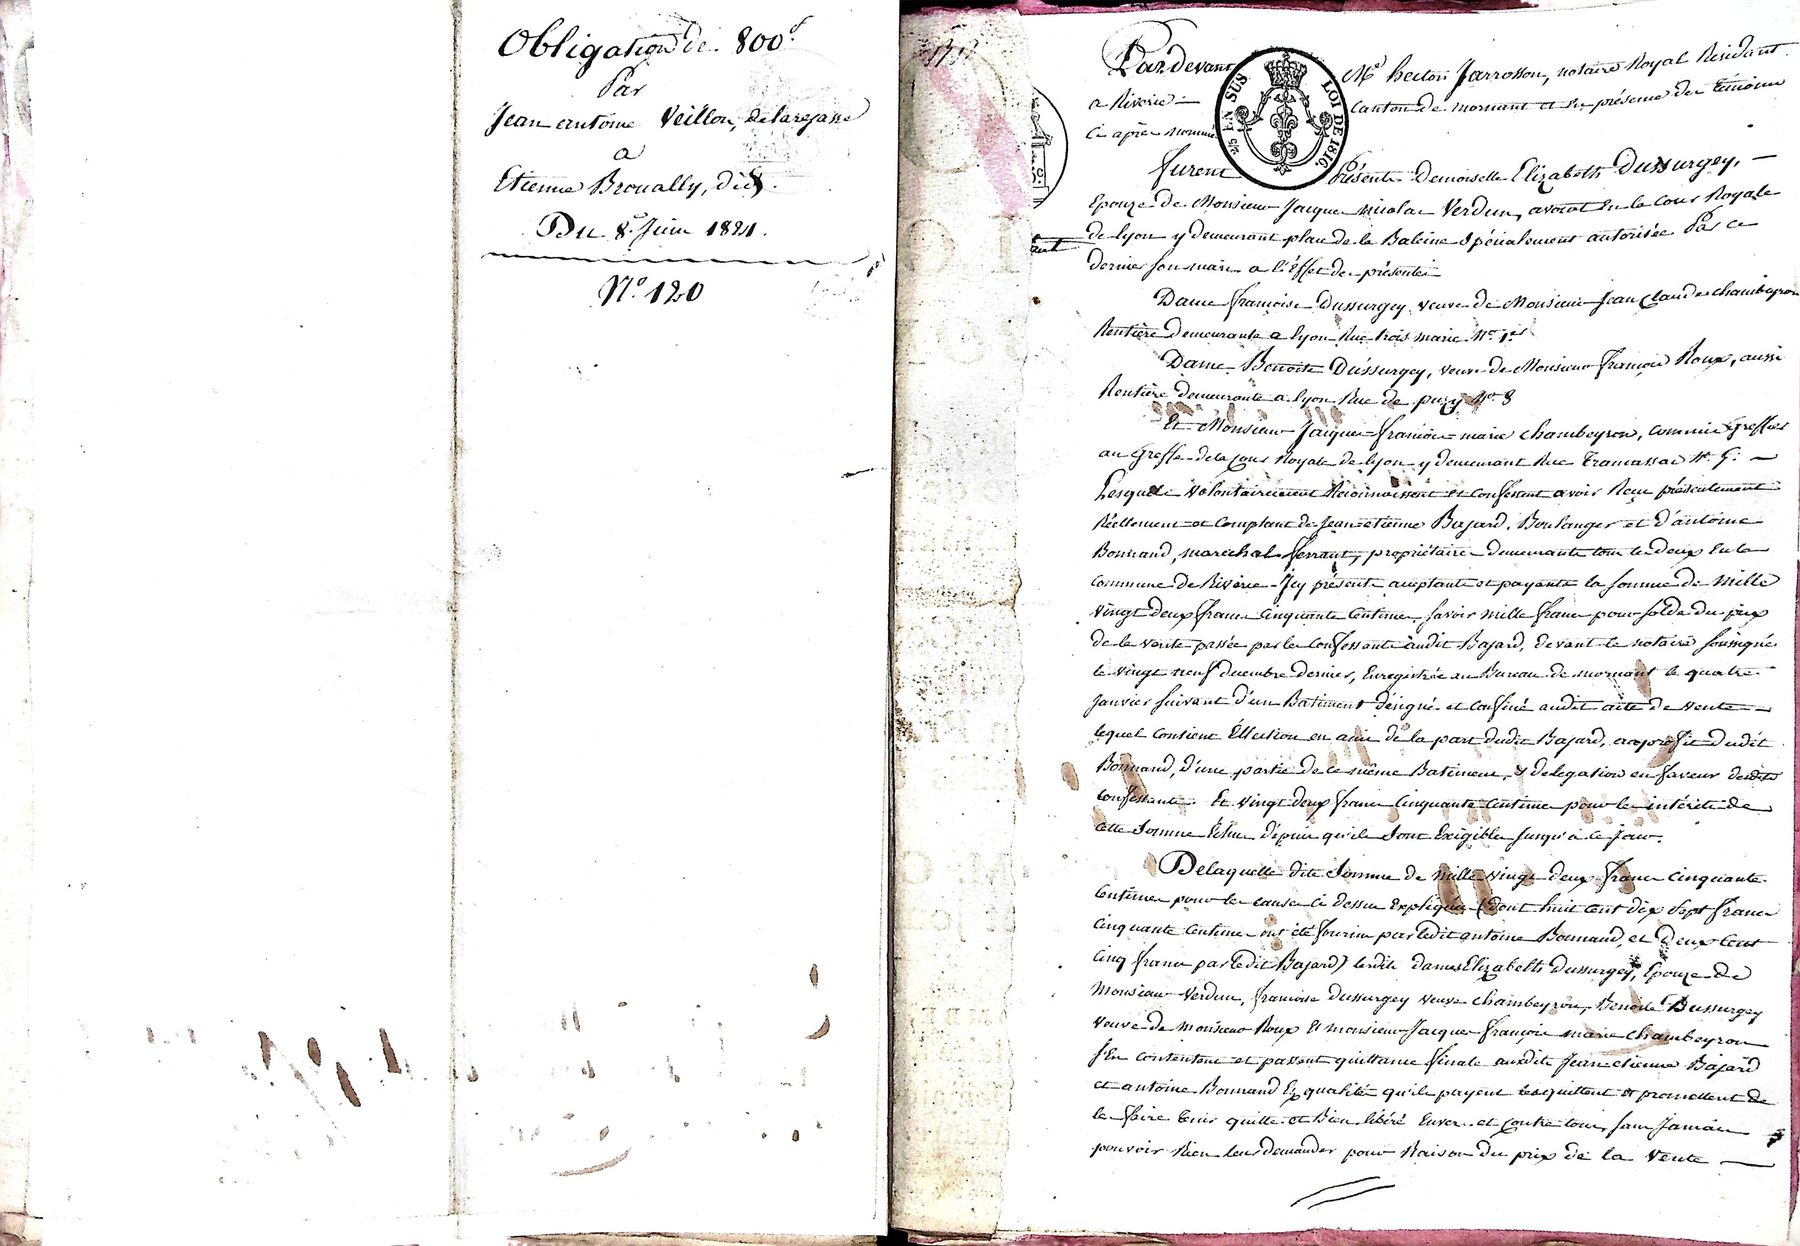 Obligation de 800f.
Par
Jean antoine Veillon, de larajasse
a
Etienne Broually, dit
Du 8. Juin 1821.
N.o 120
Par devant Me. hector Jarrosson, notaire Royal Résidant
a Riverie canton de mornant et en présence des témoins
ci après nommés
25 EN SUS LOI DE 1816.
furent Présents Demoiselle Elizabeth Dussurgey,
Epouze de Monsieur Jacques nicolas Verdun, avocat en la Cour Royale
de lyon y demeurant place de la Baleine Spécialement autorisée Par ce
dernier son mari a l'Effet des présentes
Dame françoise Dussurgey veuve de Monsieur Jean Claude chambeyron
Rentière demeurante a lyon Rue trois maries No. 1er
Dame Benoite Dussurgey, veuve de Monsieur françois Roux, aussi
Rentière demeurante a lyon Rue de puzy No. 8
Et Monsieur Jacques françois marie chambeyron, commis Greffier
au Greffe de la Cour Royale de lyon y demeurant Rue Tramassac No. 5.
Lesquels volontairement Reconnaissent et confessent avoir Reçu présentement
Réellement et comptant de Jean etienne Bajard, Boulanger et d'antoine
Bonnand, maréchal ferrant, propriétaires demeurants tous les deux en la
commune de Riverie Icy présents acceptants et payants la somme de mille
vingt deux francs cinquante centimes savoir mille francs pour solde du prix
de la vente passée par les confessants audit Bajard, devant le notaire soussigné
le vingt neuf decembre dernier, Enregistrée au Bureau de mornant le quatre
Janvier suivant d'un Batiment désigné et confiné audit acte de vente
lequel contient Election en amie de la part dudit Bajard, au profit dudit
Bonnand, d'une partie de ce même Batiment, & delegation en faveur desdits
confessants. Et vingt deux francs cinquante centimes pour les intérêts de
cette Somme Echus depuis qu'ils sont Exigibles jusqu'à ce jour.
De laquelle dite Somme de mille vingt deux francs cinquante
centimes pour les causes ci dessus Expliquées (dont huit cent dix sept francs
cinquante centimes ont été fournis par ledit antoine Bonnand, et deux cent
cinq francs par ledit Bajard) lesdites dames Elizabeth Dussurgey, Epouze de
Monsieur Verdun, françoise dussurgey veuve chambeyron, Benoite Dussurgey
veuve de monsieur Roux et monsieur Jacques françois marie chambeyron
s'en contentent et passent quittance finale auxdits Jean etienne Bajard
et antoine Bonnand Es qualités qu'ils payent les quittent et promettent de
les faire tenir quittes et Bien libérés Envers et contre tous, sans Jamais
pouvoir Rien leur demander pour Raison du prix de la vente